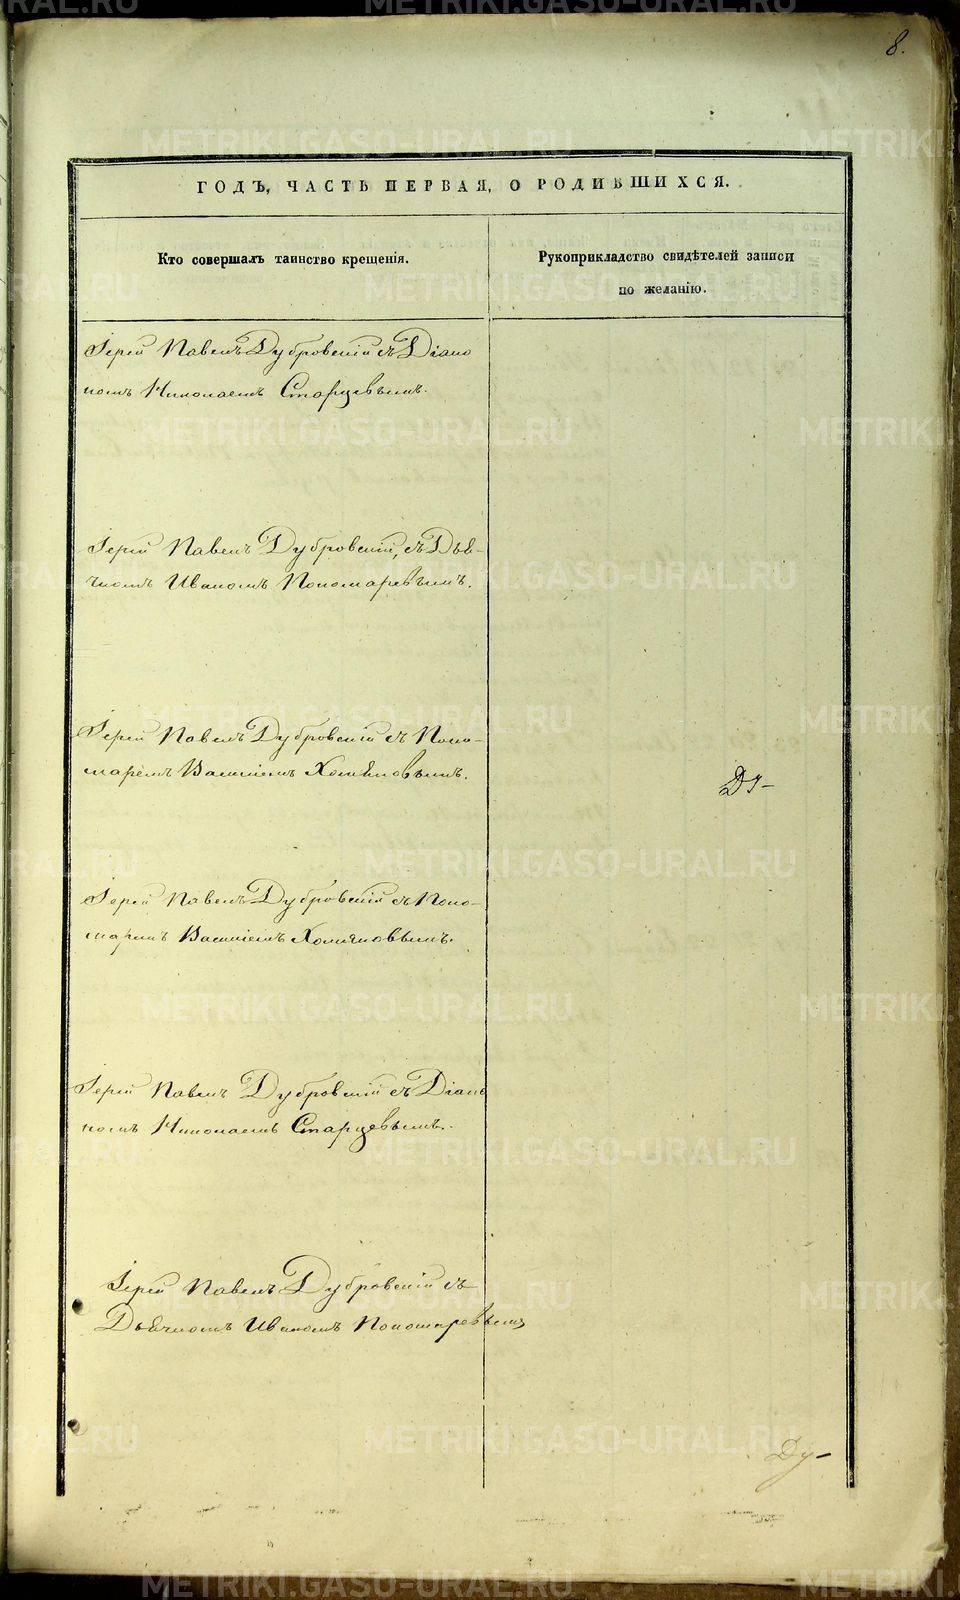 8.
ГОДЪ, ЧАСТЬ ПЕРВАЯ, О РОДИВШИХСЯ.
Кто совершалъ таинство крещенія.
Рукоприкладство свидѣтелей записи
по желанію.
Іерей Павелъ Дубровскій съ Діако
номъ Николаемъ Старцевымъ.
Іерей Павелъ Дубровскій, съ Дьяч-
комъ Иваномъ Пономаревымъ.
Іерей Павелъ Дубровскій съ Поно-
маремъ Василіемъ Хомяковымъ.
Ду-
Іерей Павелъ Дубровскій съ Поно-
маремъ Василіемъ Хомяковымъ.
Іерей Павелъ Дубровскій съ Діако
номъ Николаемъ Старцевымъ.
Іерей Павелъ Дубровскій съ
Дьячкомъ Иваномъ Пономаревымъ
Ду-
METRIKI.GASO-URAL.RU